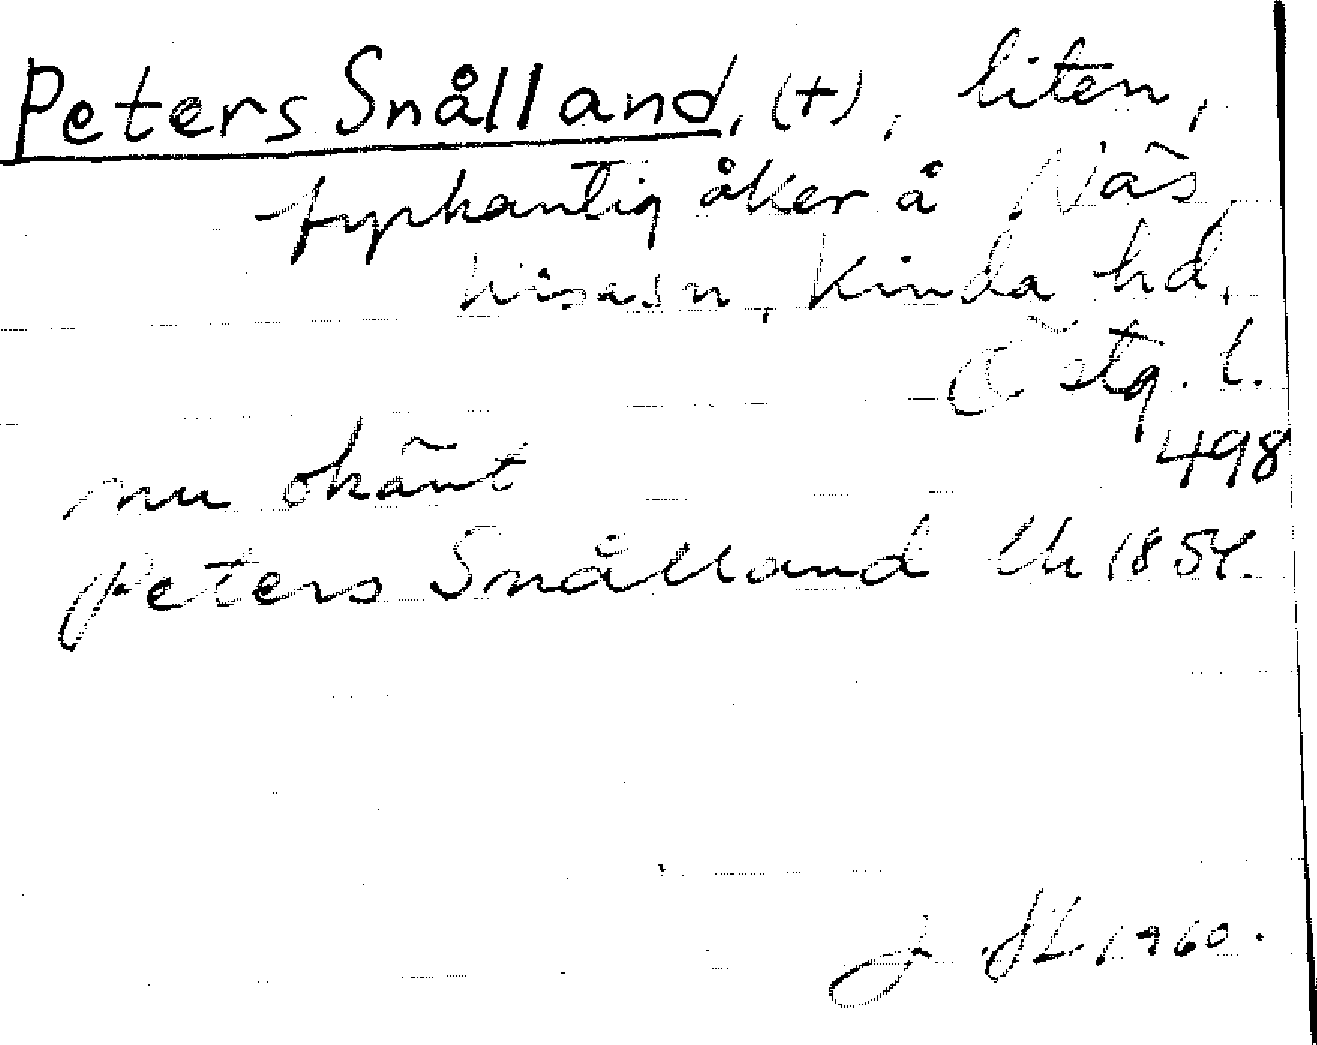 Peters Snålland, (+), liten,
fyrkantig åker å Näs
Kisa sn, Kinda hd,
Östg. l.
498
nu okänt
Peters Snålland Lh 1854.
1960.